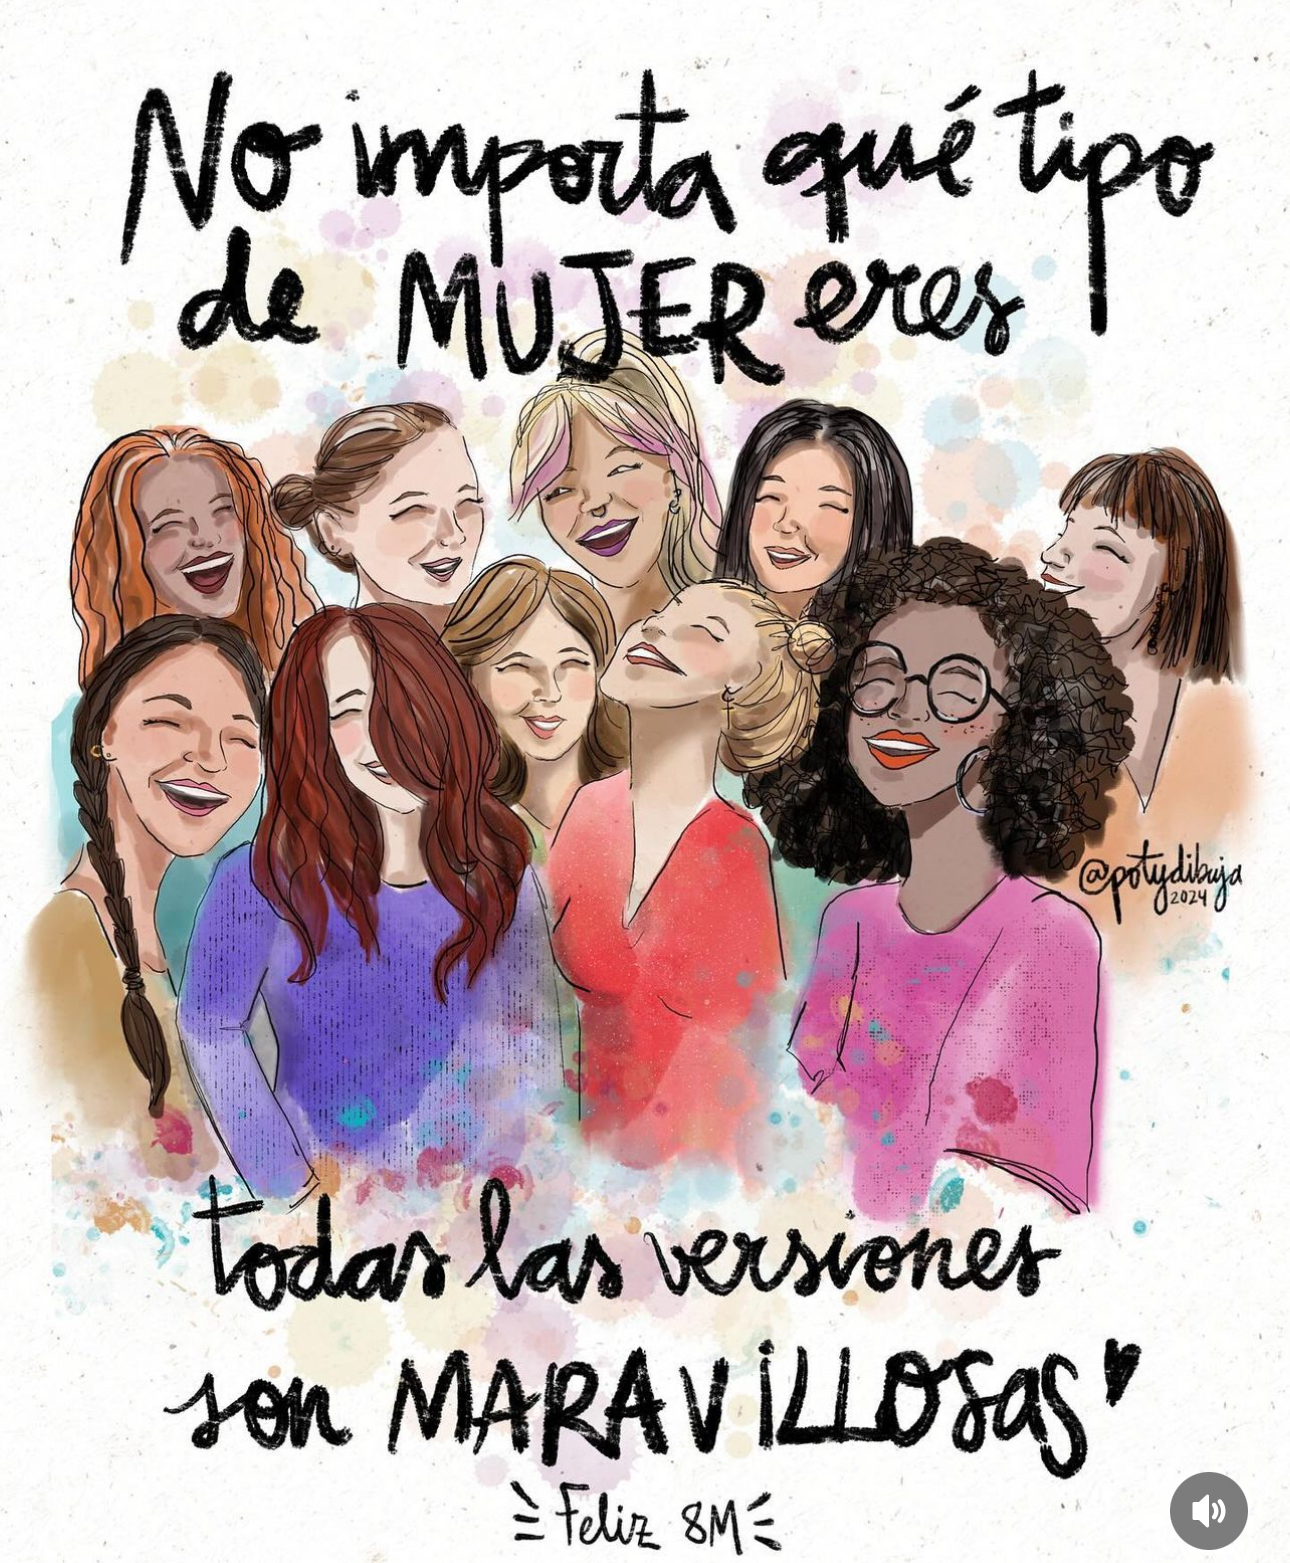 No importa qué tipo
de MUJER eres
@potydibuja
2024
todas las versiones
son MARAVILLOSAS
Feliz 8M